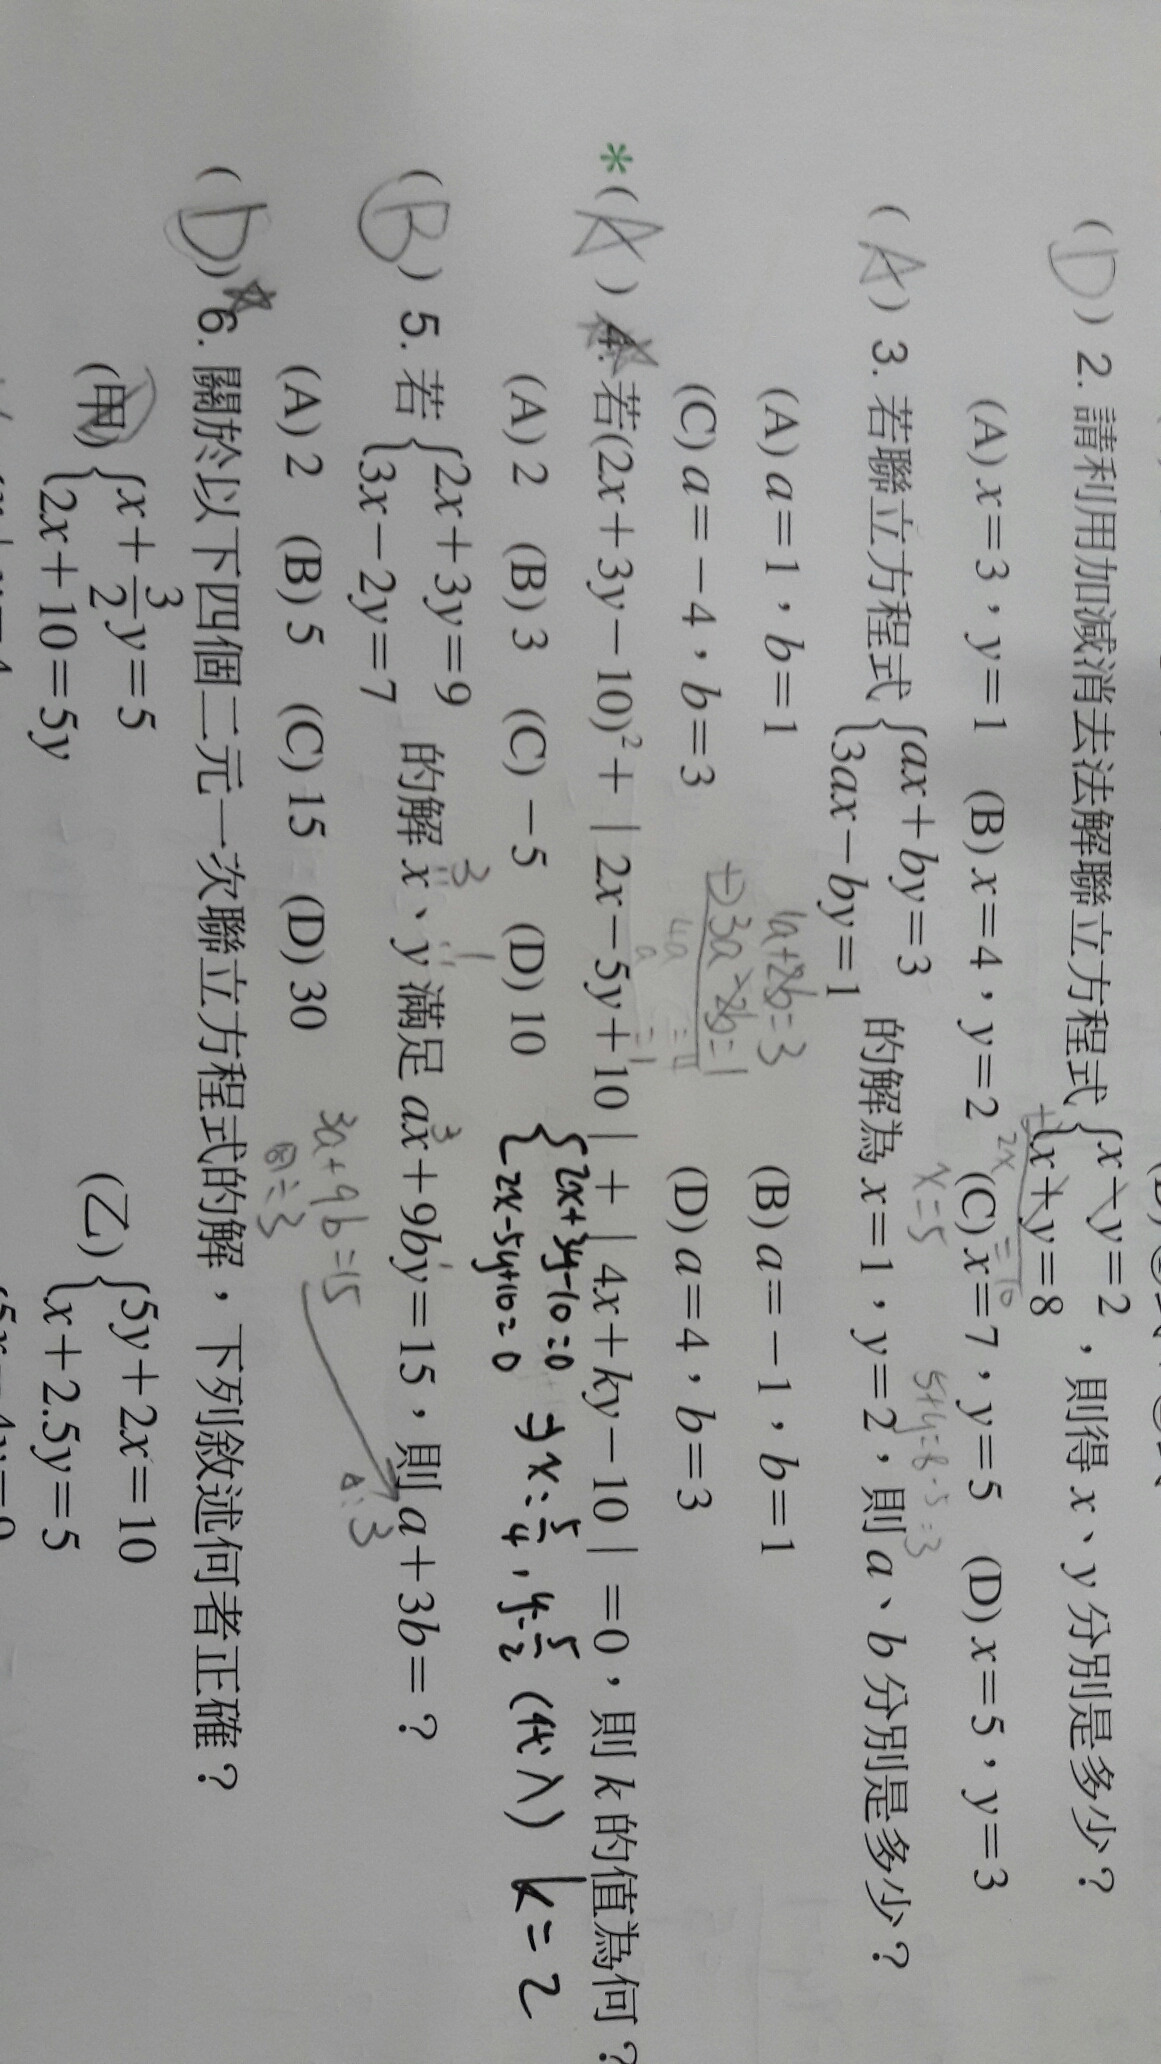 (D) 2. 請利用加減消去法解聯立方程式 { x－y＝2
x＋y＝8 ，則得 x、y 分別是多少？
2x ＝10
x＝5
5+y=8-5=3
(A) x＝3，y＝1 (B) x＝4，y＝2 (C) x＝7，y＝5 (D) x＝5，y＝3
(A) 3. 若聯立方程式 { ax＋by＝3
3ax－by＝1 的解為 x＝1，y＝2，則 a、b 分別是多少？
(A) a＝1，b＝1 (B) a＝－1，b＝1
(C) a＝－4，b＝3 (D) a＝4，b＝3
1a+2b=3
+) 3a-2b=1
4a = 4
a = 1
*(A) 4. 若(2x＋3y－10)²＋｜2x－5y＋10｜＋｜4x＋ky－10｜＝0，則 k 的值為何？
(A) 2 (B) 3 (C) －5 (D) 10
{ 2x+3y-10=0
2x-5y+10=0 ⇒ x=5/4, y=5/2 (代入) k=2
(B) 5. 若 { 2x＋3y＝9
3x－2y＝7 的解 x、y 滿足 ax＋9by＝15，則 a＋3b＝？
3 1
3
(A) 2 (B) 5 (C) 15 (D) 30
3a+9b=15
(D) 6. 關於以下四個二元一次聯立方程式的解，下列敘述何者正確？
(甲) { x＋3/2y＝5
2x＋10＝5y
(乙) { 5y＋2x＝10
x＋2.5y＝5